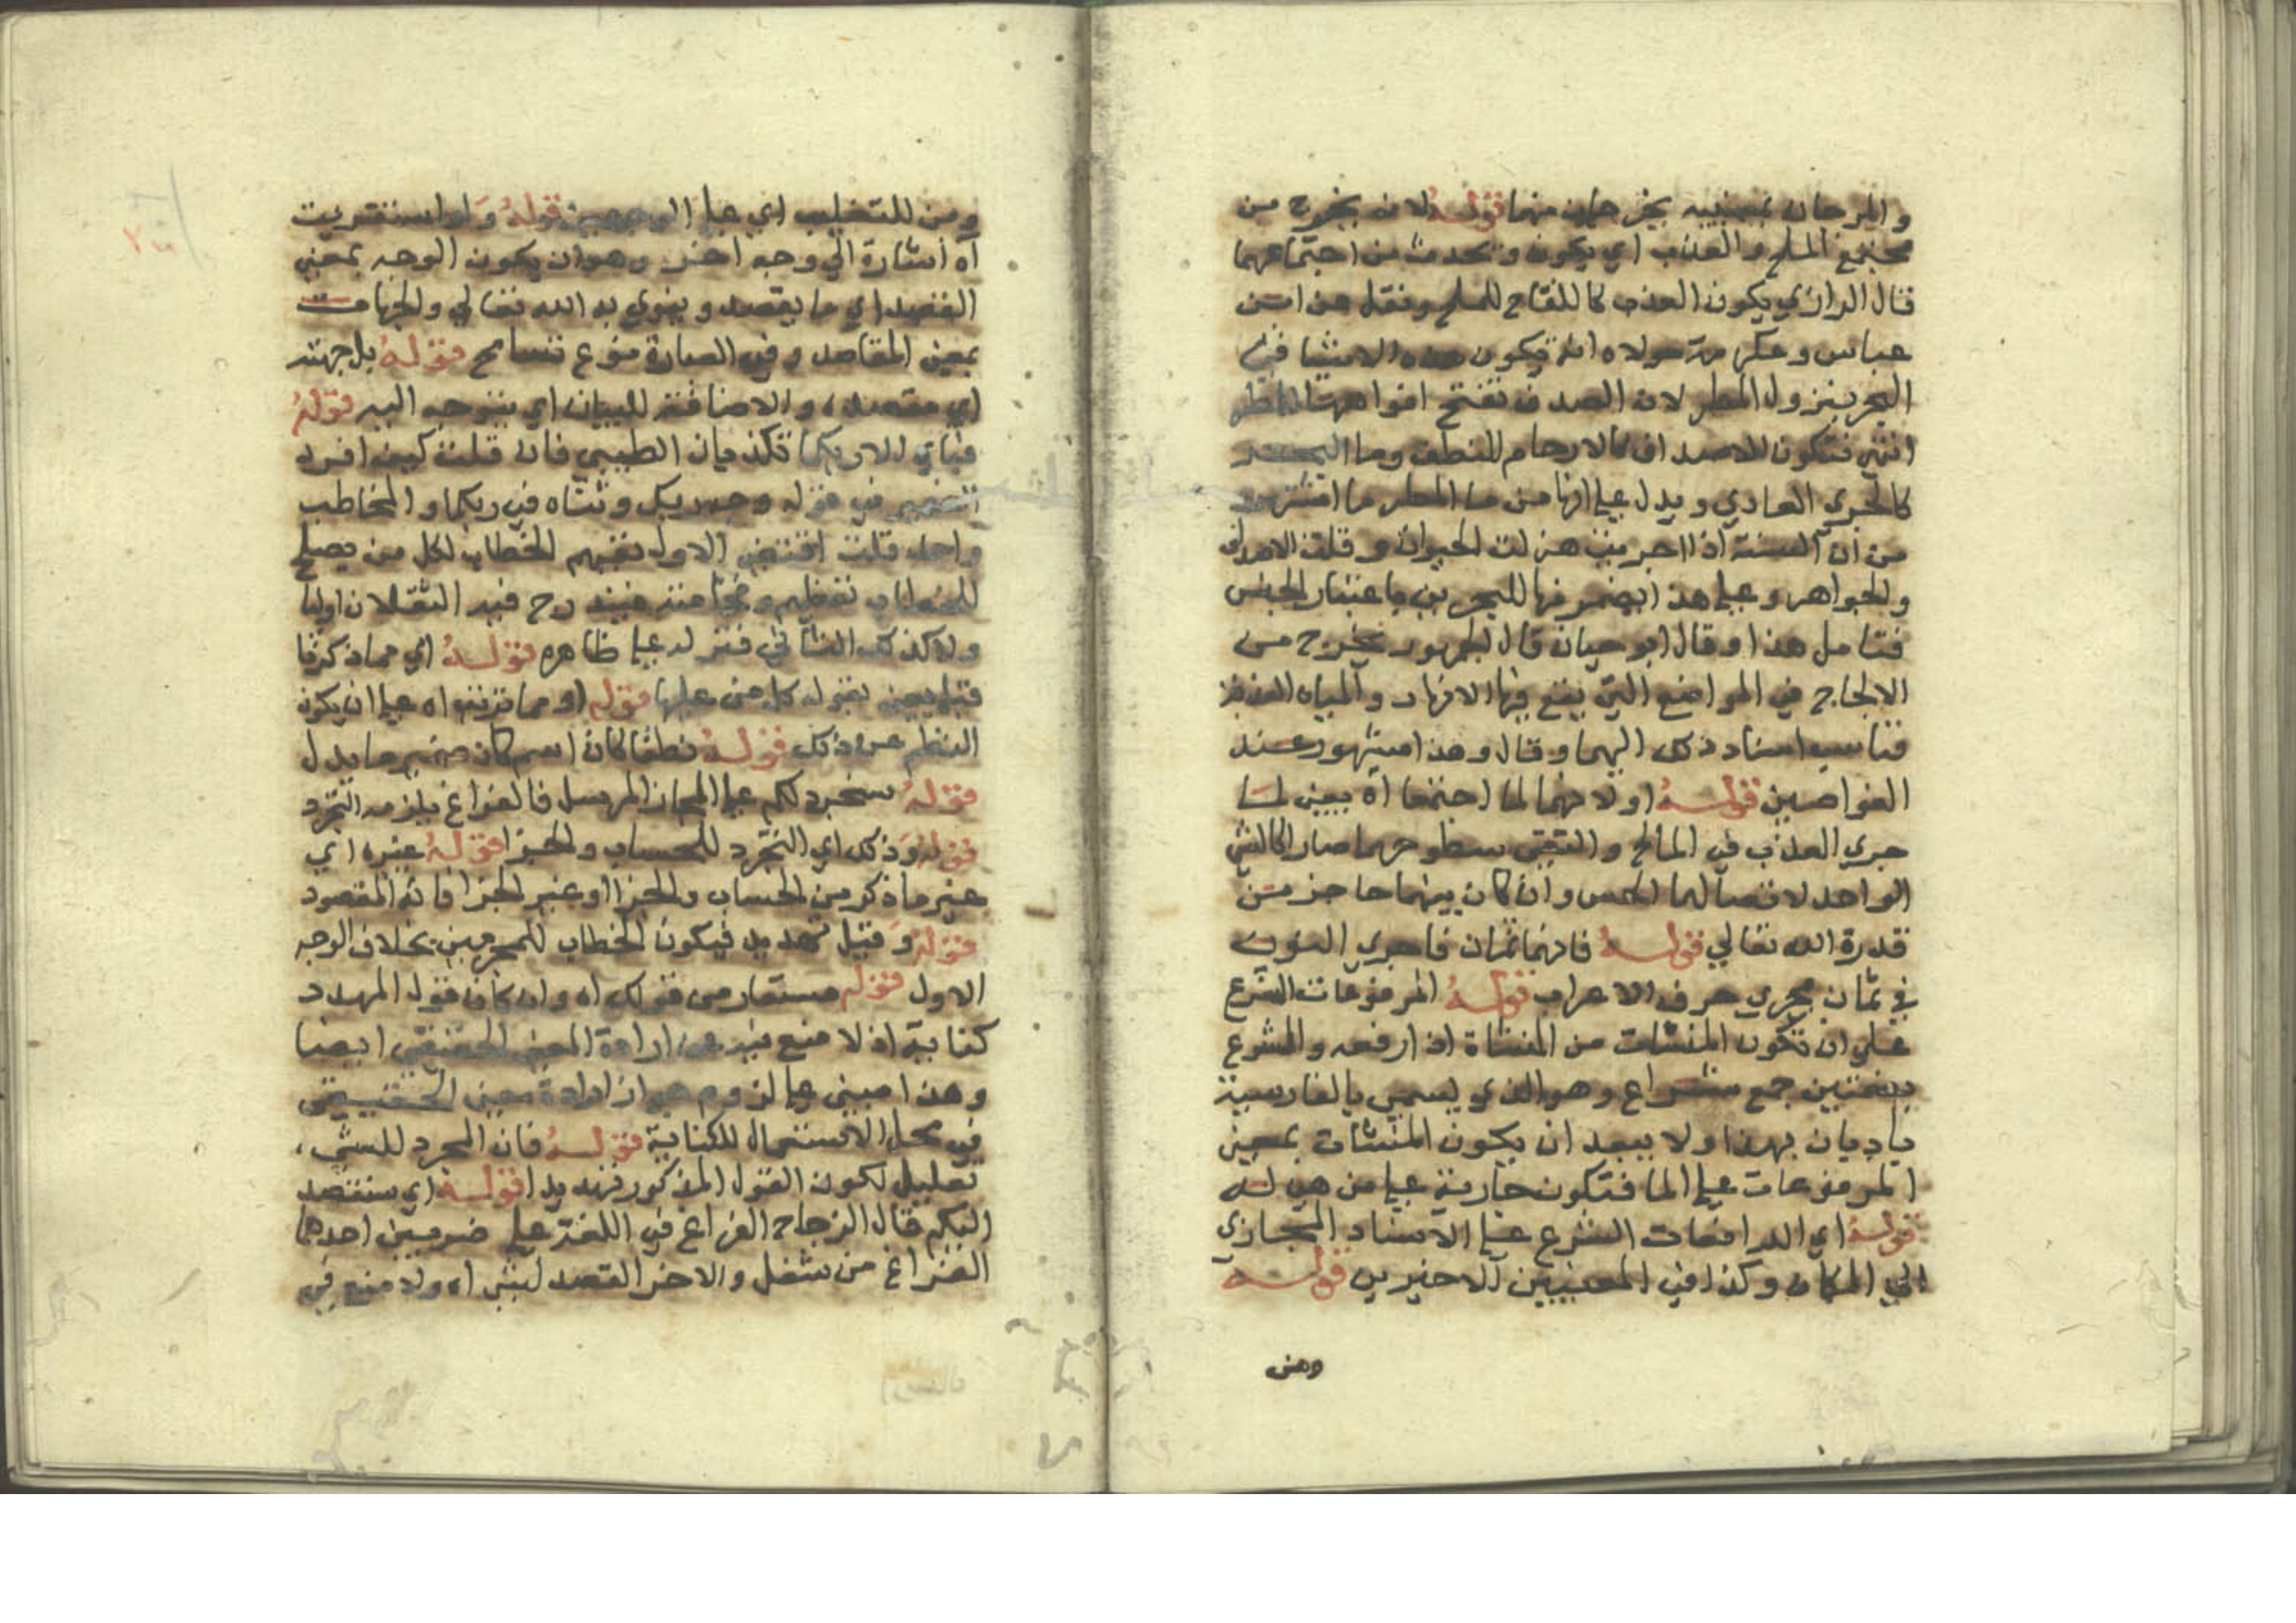 والمرجان بمعنييه يخرجان منهما قوله لانه يخرج من
مجتمع الملح والعذب اي يكون ويحدث من اجتماعهما
قال الرازي يكون العذب كاللقاح للملح ونقل عن ابن
عباس وعكرمة مولاه انه تكون هذه الاشيا في
البحر بنزول المطر لان الصدف تفتح افواهها للمطر
انتهى فتكون الاصداف كالارحام للنطف وما البحر
كالجري العادي ويدل على انها من ما المطر ما اشتهر
من ان السنة اذا اجدبت هزلت الحيوان وقلت الاصداف
والجواهر وعلى هذا ايضمر فيها للبحرين باعتبار الجنس
فتامل هذا وقال ابو حيان قال الجمهور يخرج من
الاجاج في المواضع التي يقع فيها الانهار والمياه العذبة
فناسب اسناد ذلك اليهما وقال وهذا مشهور عند
الغواصين قوله او لانهما لما اجتمعا اه يعني لما
جري العذب في المالح والتقى سطوحهما صار كالشي
الواحد لاتصالهما الحس وان كان بينهما حاجز من
قدرة الله تعالي قوله فانها ثمان فاجري النون
في ثمان مجري حرف الاعراب قوله المرفوعات الشرع
علي ان تكون المنشات من المنشاة اذا رفعه والشرع
بضمتين جمع شراع وهو الذي يسمى بالفارسية
بادبان بهذا ولا يبعد ان يكون المنشات بمعنى
المرفوعات على الما فتكون جارية على من هي له
قوله اي الرافعات الشرع على الاسناد المجازي
الي المكان وكذا في المعنيين الاخيرين قوله
ومن
ومن للتغليب اي على الوجهين قوله ولو استقريت
اه اشارة الي وجه اخر وهو ان يكون الوجه بمعني
القصد اي ما يقصد وينوي به الله تعالي والجهات
بمعنى المقاصد وفي العبارة نوع تسامح قوله يل جهته
اي مقصده والاضافة للبيان اي يتوجه اليه قوله
فباي الاربكما تكذبان الطيبي فان قلت كيف افرد
الضمير في قوله وجه ربك وثناه في ربكما والمخاطب
واحد قلت اقتضى الاول تعميم الخطاب لكل من يصلح
للخطاب تعظيم وفخامته فيندرج فيه الثقلان اوليا
ولا كذلك الثاني فنزله على ظاهره قوله اي مما ذكرنا
قبل يعني بقوله كل من عليها قوله او مما ترتب اه على ان يكون
النظم عن ذلك قوله نطفا كان اسم كان ضمير ما يدل
قوله سنجرد لكم على المجاز المرسل فالفراغ يلزمه التجرد
قوله وذلك اي التجرد للحساب والجزا قوله غيره اي
غير ما ذكر من الحساب والجزا او غير الجزا فانه المقصود
قوله وقيل تهديد فيكون الخطاب للمجرمين بخلاف الوجه
الاول قوله مستعار من قولك اه وان كان قول المهدد
كناية اذ لا منع فيه عن ارادة المعنى الحقيقي ايضا
وهذا مبني على لزوم جواز ارادة معنى الحقيقي
في محل الاستعمال للكناية قوله فان المجرد للشي
تعليل لكون القول المذكور تهديدا قوله اي سنقصد
اليكم قال الزجاج الفراغ في اللغة على ضربين احدهما
الفراغ من شغل والاخر القصد لشي اه ولا منع في